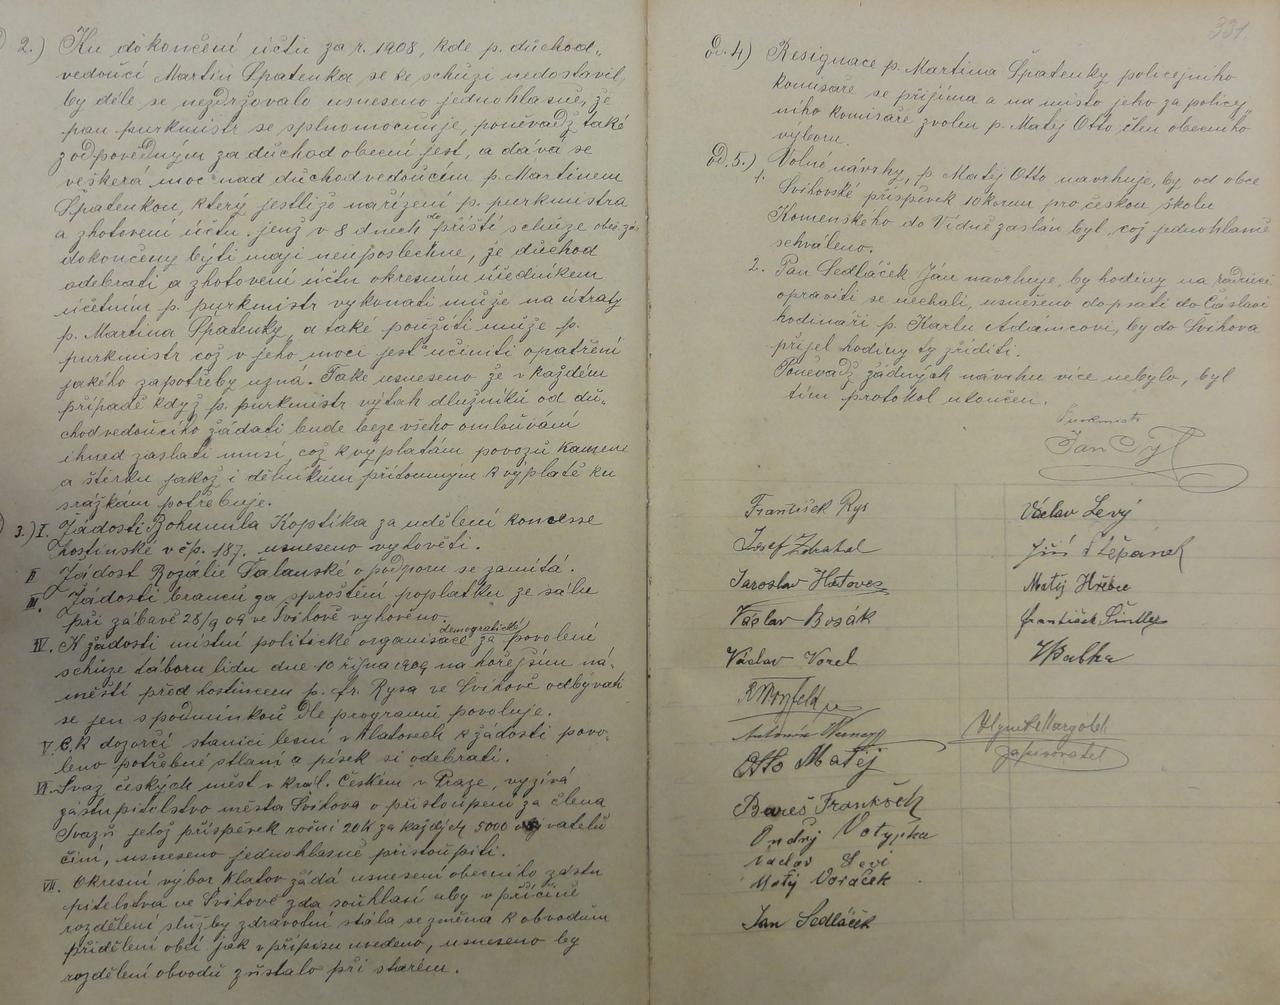 2.) Ku dokončení účtu za r. 1908, kde p. důchod-
vedoucí Martin Špatenka se ke schůzi nedostavil,
by déle se nezdržovalo usneseno jednohlasně, že
pan purkmistr se splnomocňuje, poněvadž také
zodpovědným za důchod obecní jest, a dává se
veškerá moc nad důchodvedoucím p. Martinem
Špatenkou, který jestliže nařízení p. purkmistra
a zhotovení účtu jenž v 8 dnech do příští schůze
dokončeny býti mají neuposlechne, že důchod
odebrati a zhotovení účtu okresním úředníkem
účetním p. purkmistr vykonati může na útraty
p. Martina Špatenky, a také použíti může p.
purkmistr což v jeho moci jest učiniti opatření
jakého zapotřeby uzná. Také usneseno že v každém
případě když p. purkmistr výtah dlužníků od dů-
chodvedoucího žádati bude beze všeho omlouvání
ihned zaslati musí, což k výplatám povozů kamene
a štěrku jakož i dělníkům přítomným k výplatě ku
srážkám potřebuje.
3.) I. Žádosti Bohumila Koptíka za udělení koncesse
hostinské v čp. 187. usneseno vyhověti.
II Žádost Rozálie Talanské o podporu se zamítá.
III. Žádosti branců za sproštění poplatku ze sálu
při zábavě 28/9 09 ve Švihově vyhověno.
IV. K žádosti místní politické organisace demogratické za povolení
schůze táboru lidu dne 10 října 1909 na hořejším ná-
městí před hostincem p. Fr. Rysa ve Švihově odbývati
se jen s podmínkou dle programu povoluje.
V. C.K dozorčí stanici lesní v Klatovech k žádosti povo-
leno potřebné stlaní a písek si odebrati.
VI. Svaz českých měst v král. Českém v Praze, vyzívá
zástupitelstvo města Švihova o přistoupení za člena
Svazu jehož příspěvek roční 20K za každých 5000 obyvatelů
činí, usneseno jednohlasně přistoupiti.
VII. Okresní výbor Klatov žádá usnesení obecního zastu
pitelstva ve Švihově zda souhlasí aby v příčině
rozdělení služby zdravotní stála se změna k obvodům
přidělení obcí jak v přípisu uvedeno, usneseno by
rozdělení obvodů zůstalo při starém.
331.
od. 4) Resignace p. Martina Špatenky policejního
komisaře se přijíma a na místo jeho za policej-
ního komisaře zvolen p. Matěj Otto člen obecního
výboru.
od. 5.) Volné návrhy,
1. p. Matěj Otto navrhuje, by od obce
Švihovské příspěvek 10 korun pro českou školu
Komenského do Vídně zaslán byl, což jednohlasně
schváleno.
2. Pan Sedláček Ján navrhuje, by hodiny na radnici
opraviti se nechali, usnešeno dopsati do Čáslavi
hodináři p. Karlu Adámcovi, by do Švihova
přijel hodiny ty zříditi.
Poněvadž žádných návrhu více nebylo, byl
tím protokol ukončen.
Purkmistr
Jan Cyl
František Rys
Josef Zdrahal
Jaroslav Hatoves
Václav Bosák
Václav Vorel
Otto Matěj
Bareš František
Ondřy Votypka
Václav Levi
Matěj Voráček
Jan Sedláček
Václav Levý
Jiří Štěpánek
Matěj
František
VBabka
Hynek Margold
zapisovatel